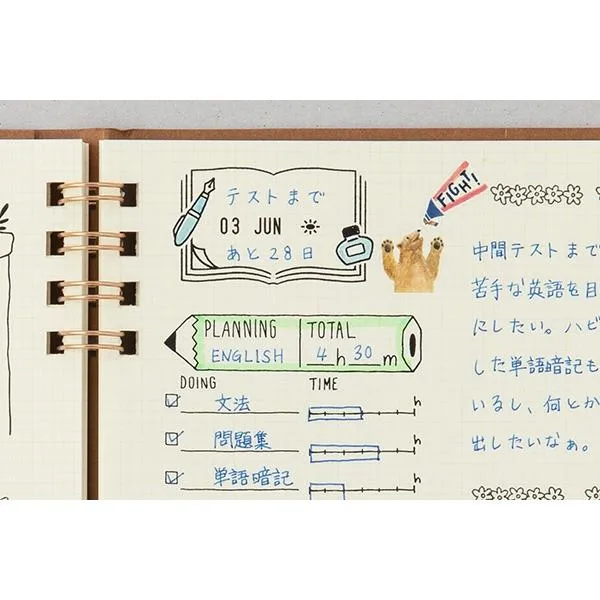 テストまで
03 JUN
あと28日
FIGHT!
PLANNING TOTAL
ENGLISH 4h 30m
DOING TIME
文法 h
問題集 h
単語暗記 h
中間テストまで
苦手な英語を目
にしたい。ハビ
した単語暗記も
いるし、何とか
出したいなぁ。